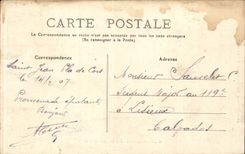 CARTE POSTALE
La Correspondance au recto n'est pas acceptée par tous les pays étrangers
(Se renseigner à la Poste)
Correspondance
Adresse
Saint Jean Pla de Cors
le 24/2 07
Promenade épatante
Bonjour
Monsieur Sauvelet
Sergent Major au 119e
à Lisieux
Calvados